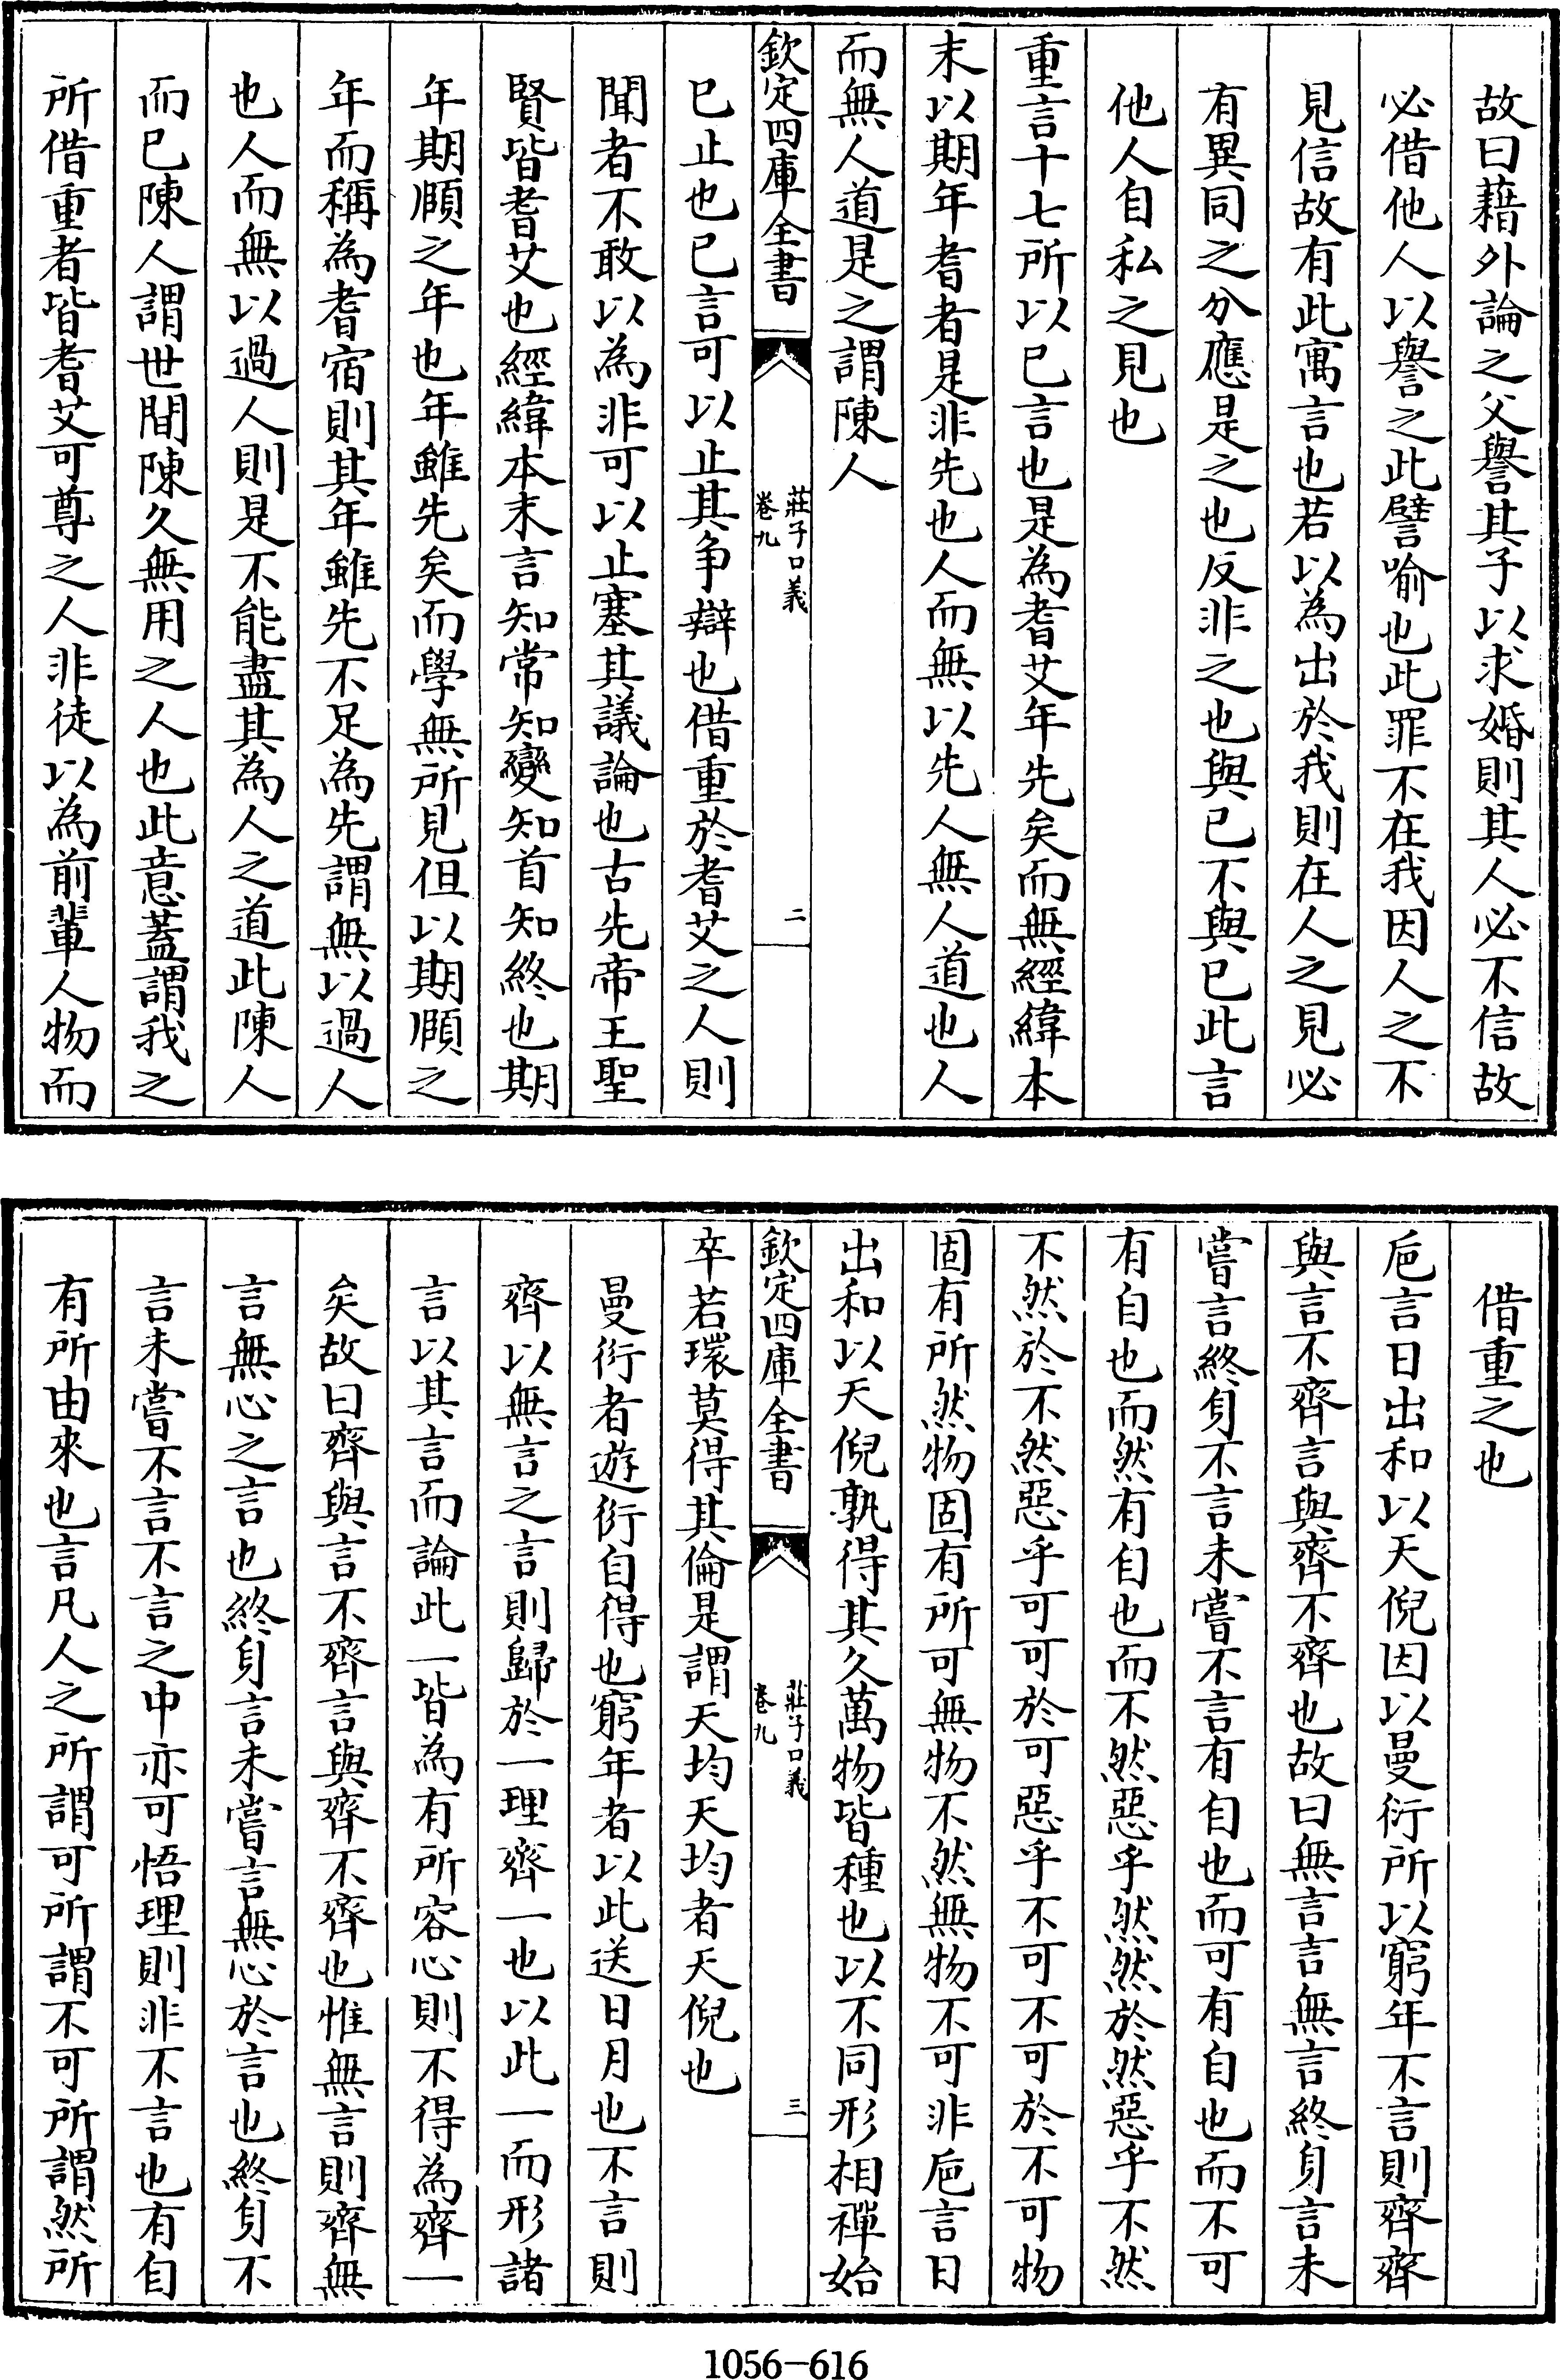 故曰藉外論之父譽其子以求婚則其人必不信故
必借他人以譽之此譬喻也此罪不在我因人之不
見信故有此寓言也若以為出於我則在人之見必
有異同之分應是之也反非之也與已不與已此言
他人自私之見也
重言十七所以已言也是為耆艾年先矣而無經緯本
末以期年耆者是非先也人而無以先人無人道也人
而無人道是之謂陳人
欽定四庫全書
莊子口義
卷九
二
已止也已言可以止其争辯也借重於耆艾之人則
聞者不敢以為非可以止塞其議論也古先帝王聖
賢皆耆艾也經緯本末言知常知變知首知終也期
年期頤之年也年雖先矣而學無所見但以期頤之
年而稱為耆宿則其年雖先不足為先謂無以過人
也人而無以過人則是不能盡其為人之道此陳人
而已陳人謂世間陳久無用之人也此意蓋謂我之
所借重者皆耆艾可尊之人非徒以為前輩人物而
借重之也
巵言日出和以天倪因以曼衍所以窮年不言則齊齊
與言不齊言與齊不齊也故曰無言言無言終身言未
嘗言終身不言未嘗不言有自也而可有自也而不可
有自也而然有自也而不然惡乎然然於然惡乎不然
不然於不然惡乎可可於可惡乎不可不可於不可物
固有所然物固有所可無物不然無物不可非巵言日
出和以天倪孰得其久萬物皆種也以不同形相禪始
欽定四庫全書
莊子口義
卷九
三
卒若環莫得其倫是謂天均天均者天倪也
曼衍者遊衍自得也窮年者以此送日月也不言則
齊以無言之言則歸於一理齊一也以此一而形諸
言以其言而論此一皆為有所容心則不得為齊一
矣故曰齊與言不齊言與齊不齊也惟無言則齊無
言無心之言也終身言未嘗言無心於言也終身不
言未嘗不言不言之中亦可悟理則非不言也有自
有所由來也言凡人之所謂可所謂不可所謂然所
1056-616